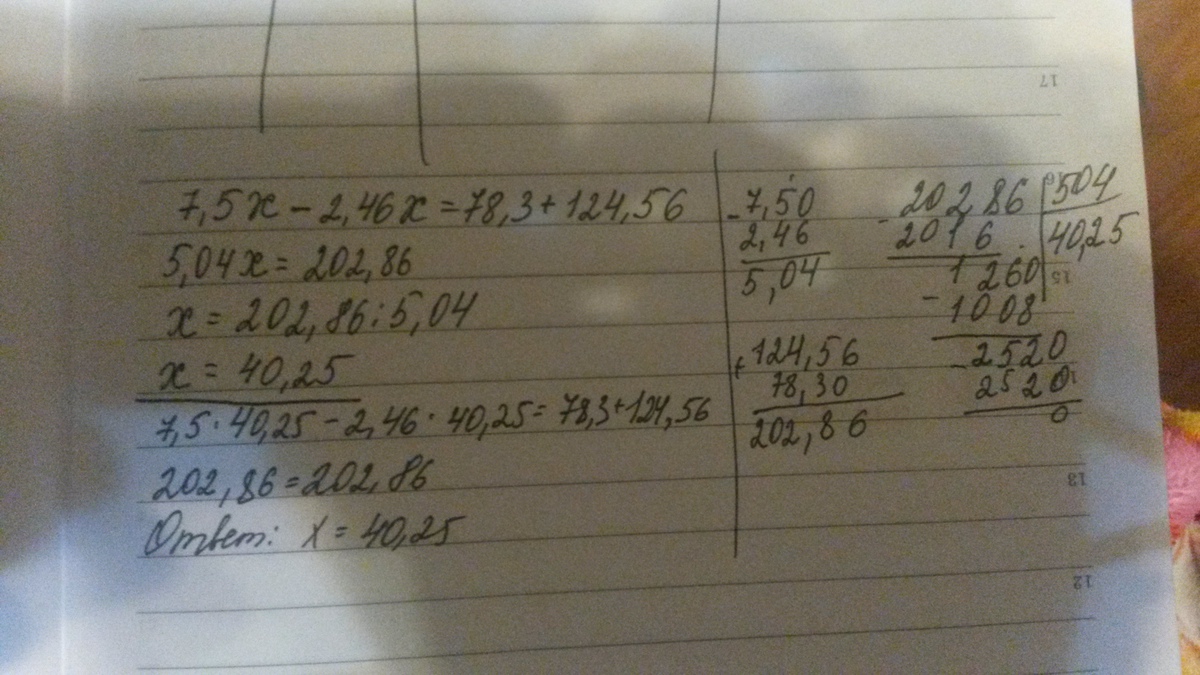 17
7,5x - 2,46x = 78,3 + 124,56
5,04x = 202,86
x = 202,86 : 5,04
x = 40,25
7,5 · 40,25 - 2,46 · 40,25 = 78,3 + 124,56
202,86 = 202,86
Ответ: x = 40,25
- 7,50
2,46
5,04
+ 124,56
78,30
202,86
- 20286 | 504
2016 | 40,25
1260
- 1008
- 2520
2520
0
15
13
12